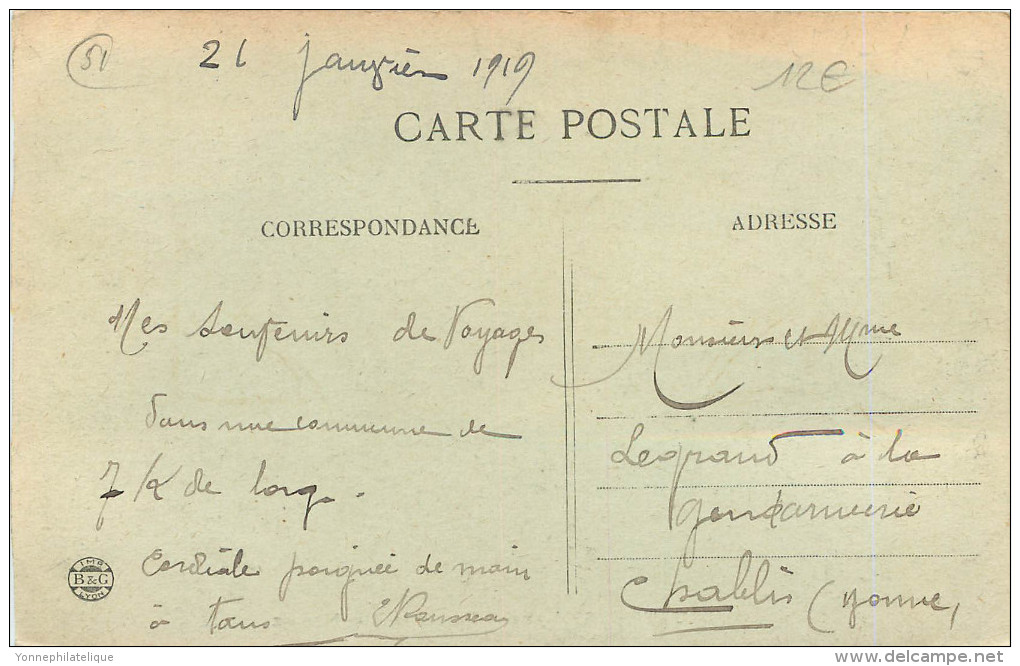 51
21 janvier 1919
12€
CARTE POSTALE
CORRESPONDANCE
ADRESSE
Mes Souvenirs de Voyages
dans une commune de
7 K de long.
Cordiale poignée de main
à tous ERousseau
Monsieur et Mme
Legrand à la
gendarmerie
Chablis (Yonne,
IMP
B&G
LYON
Yonnephilatelique
delcampe.net